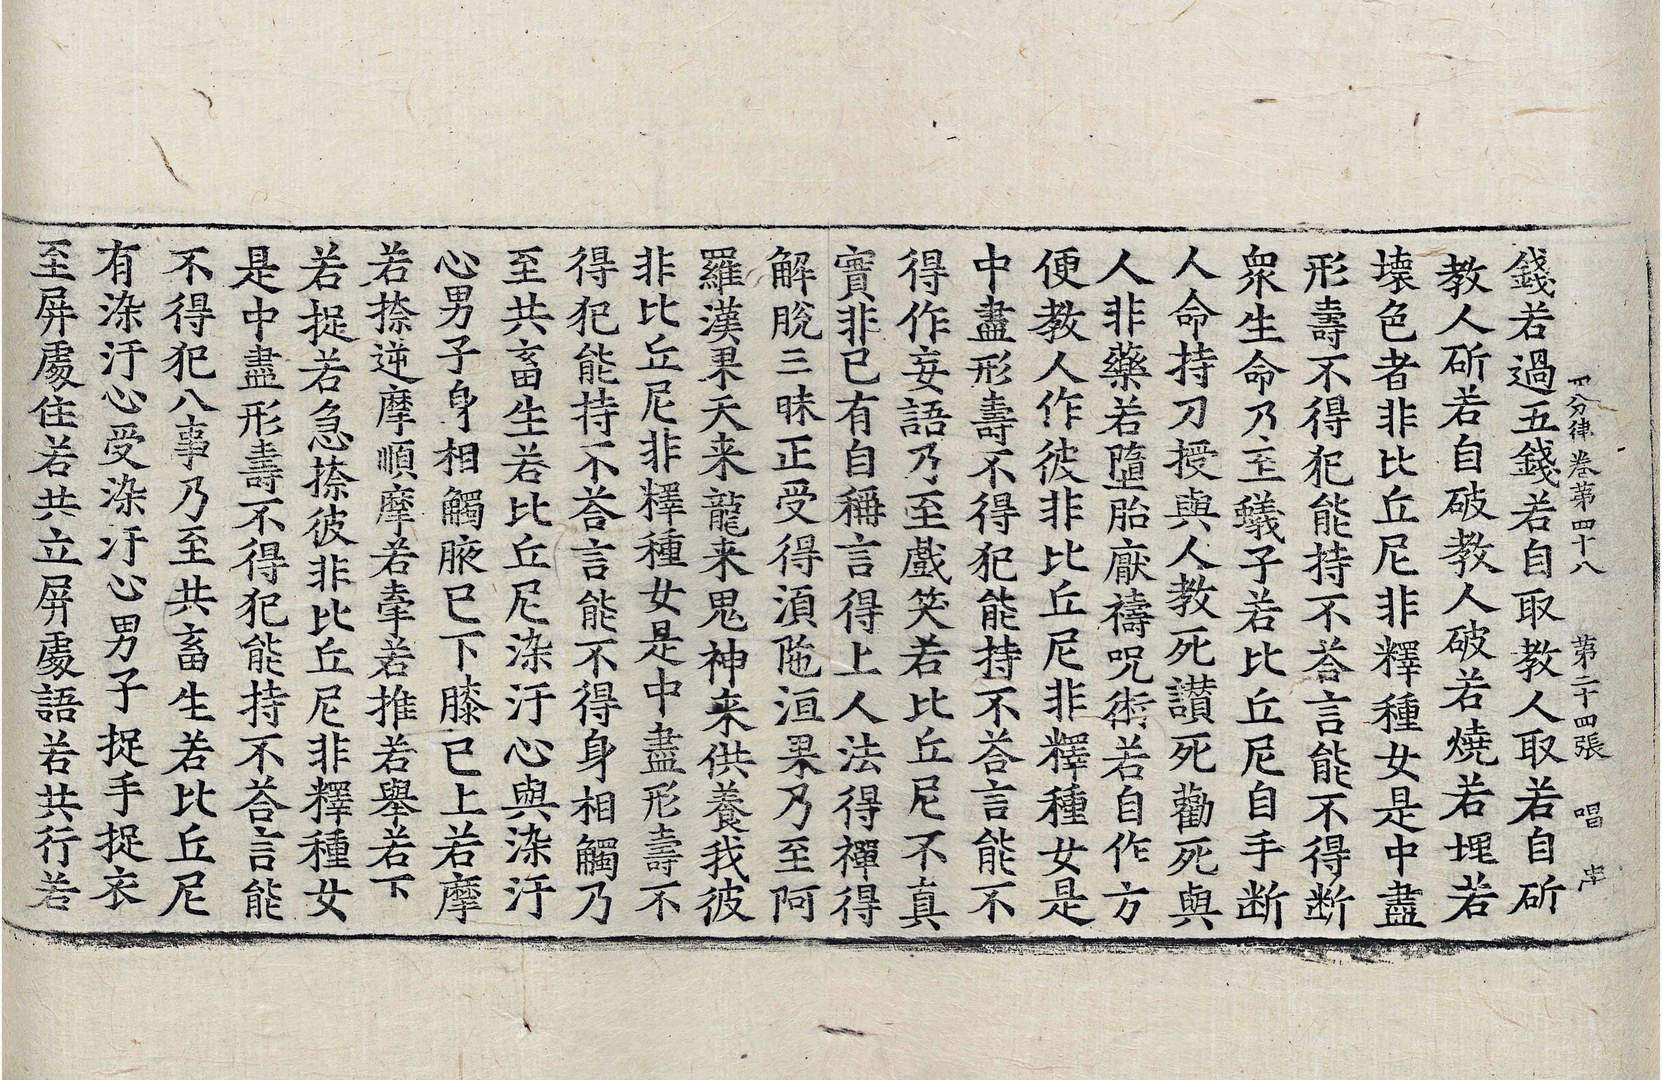 四分律卷第四十八 第二十四張 唱
錢若過五錢若自取教人取若自斫
教人斫若自破教人破若燒若埋若
壞色者非比丘尼非釋種女是中盡
形壽不得犯能持不荅言能不得断
衆生命乃至蟻子若比丘尼自手断
人命持刀授與人教死讃死勸死與
人非藥若墮胎厭禱呪術若自作方
便教人作彼非比丘尼非釋種女是
中盡形壽不得犯能持不荅言能不
得作妄語乃至戲笑若比丘尼不真
實非已有自稱言得上人法得禪得
解脫三昧正受得湏陁洹果乃至阿
羅漢果天来龍来鬼神来供養我彼
非比丘尼非釋種女是中盡形壽不
得犯能持不荅言能不得身相觸乃
至共畜生若比丘尼染汙心與染汙
心男子身相觸腋已下膝已上若摩
若捺逆摩順摩若牽若推若舉若下
若捉若急捺彼非比丘尼非釋種女
是中盡形壽不得犯能持不荅言能
不得犯八事乃至共畜生若比丘尼
有染汙心受染汙心男子捉手捉衣
至屏處住若共立屏處語若共行若